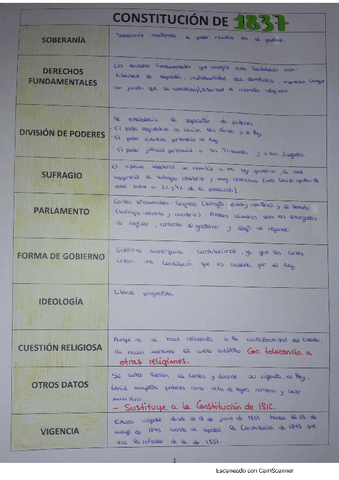 CONSTITUCIÓN DE 1837
SOBERANÍA
Soberanía nacional, el poder reside en el pueblo.
DERECHOS
FUNDAMENTALES
Los derechos fundamentales que recogía esta Constitución eran:
libertad de expresión, inviolabilidad del domicilio, imprenta
DIVISIÓN DE PODERES
Se establece la separación de poderes:
- El poder legislativo las Cortes y el Rey
- El poder ejecutivo pertenecía al Rey.
- El poder judicial pertenecía a los Tribunales y a los Juzgados
SUFRAGIO
El sistema electoral se a una ley posterior, la cual
de sufragio censitario y muy restrictivo
votar entre un 2% y 4% de la población)
PARLAMENTO
Cortes bicamerales: Congreso Diputados y el Senado
(sufragio indirecto y censitario). Ambas cámaras eran las encargadas
de legislar, controlar el gobierno y elegir al regente.
FORMA DE GOBIERNO
Gobierno monárquico - constitucional, ya que las Cortes
crean una Constitución que es aceptada por el Rey.
IDEOLOGÍA
Liberal progresista.
CUESTIÓN RELIGIOSA
Aunque no se hace referencia a la confesionalidad del Estado,
la nación mantiene el culto católico Con tolerancia a
otras religiones.
OTROS DATOS
Su autor fueron las Cortes y durante su vigencia, el Rey
tenía amplios poderes como veto de leyes, nombrar y cesar
ministros.
- Sustituye a la Constitución de 1812.
VIGENCIA
Estuvo vigente desde el 18 de junio de 1837 hasta el 23 de
mayo de 1845 cuando se aprobó la Constitución de 1845 que
era la reforma de la de 1837.
1
Escaneado con CamScanner